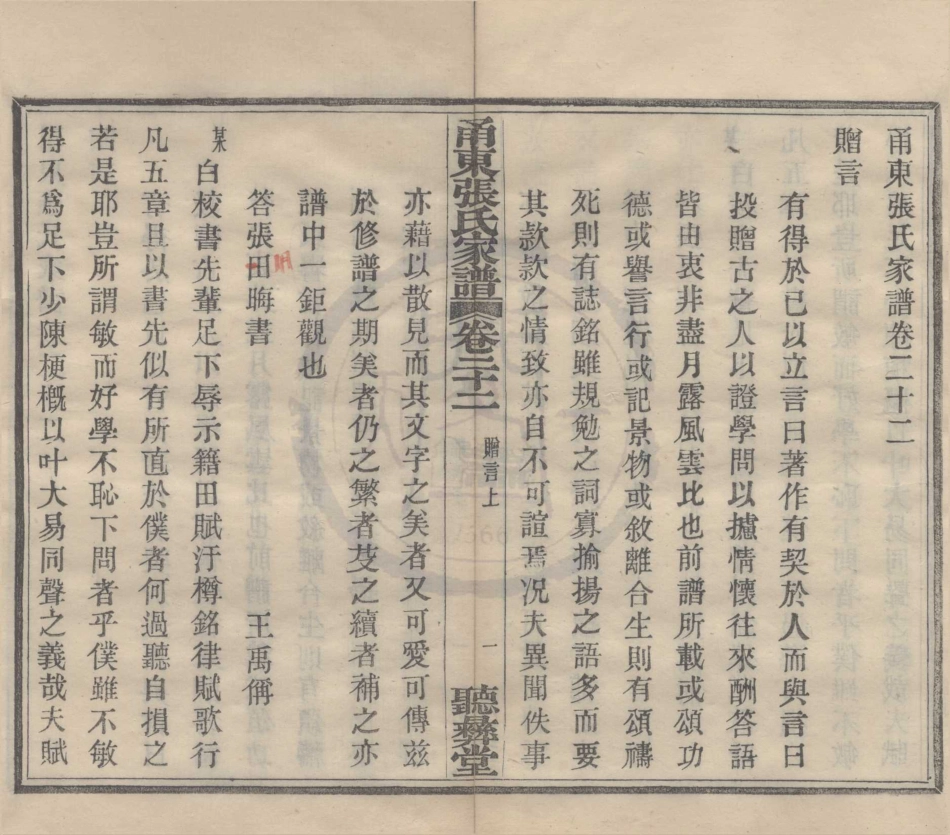 甬東張氏家譜卷二十二
贈言
有得於已以立言曰著作有契於人而與言曰
投贈古之人以證學問以攄情懷往來酬答語
皆由衷非盡月露風雲比也前譜所載或頌功
德或譽言行或記景物或敘離合生則有頌禱
死則有誌銘雖規勉之詞寡揄揚之語多而要
其款款之情致亦自不可諠焉况夫異聞佚事
甬東張氏家譜 卷二十二 贈言上 一 聽彝堂
亦藉以散見而其文字之美者又可愛可傳兹
於修譜之期美者仍之繁者芟之續者補之亦
譜中一鉅觀也
答張田晦書 王禹偁
某白校書先輩足下辱示籍田賦汙樽銘律賦歌行
凡五章且以書先似有所直於僕者何過聽自損之
若是耶豈所謂敏而好學不恥下問者乎僕雖不敏
得不爲足下少陳梗概以叶大易同聲之義哉夫賦